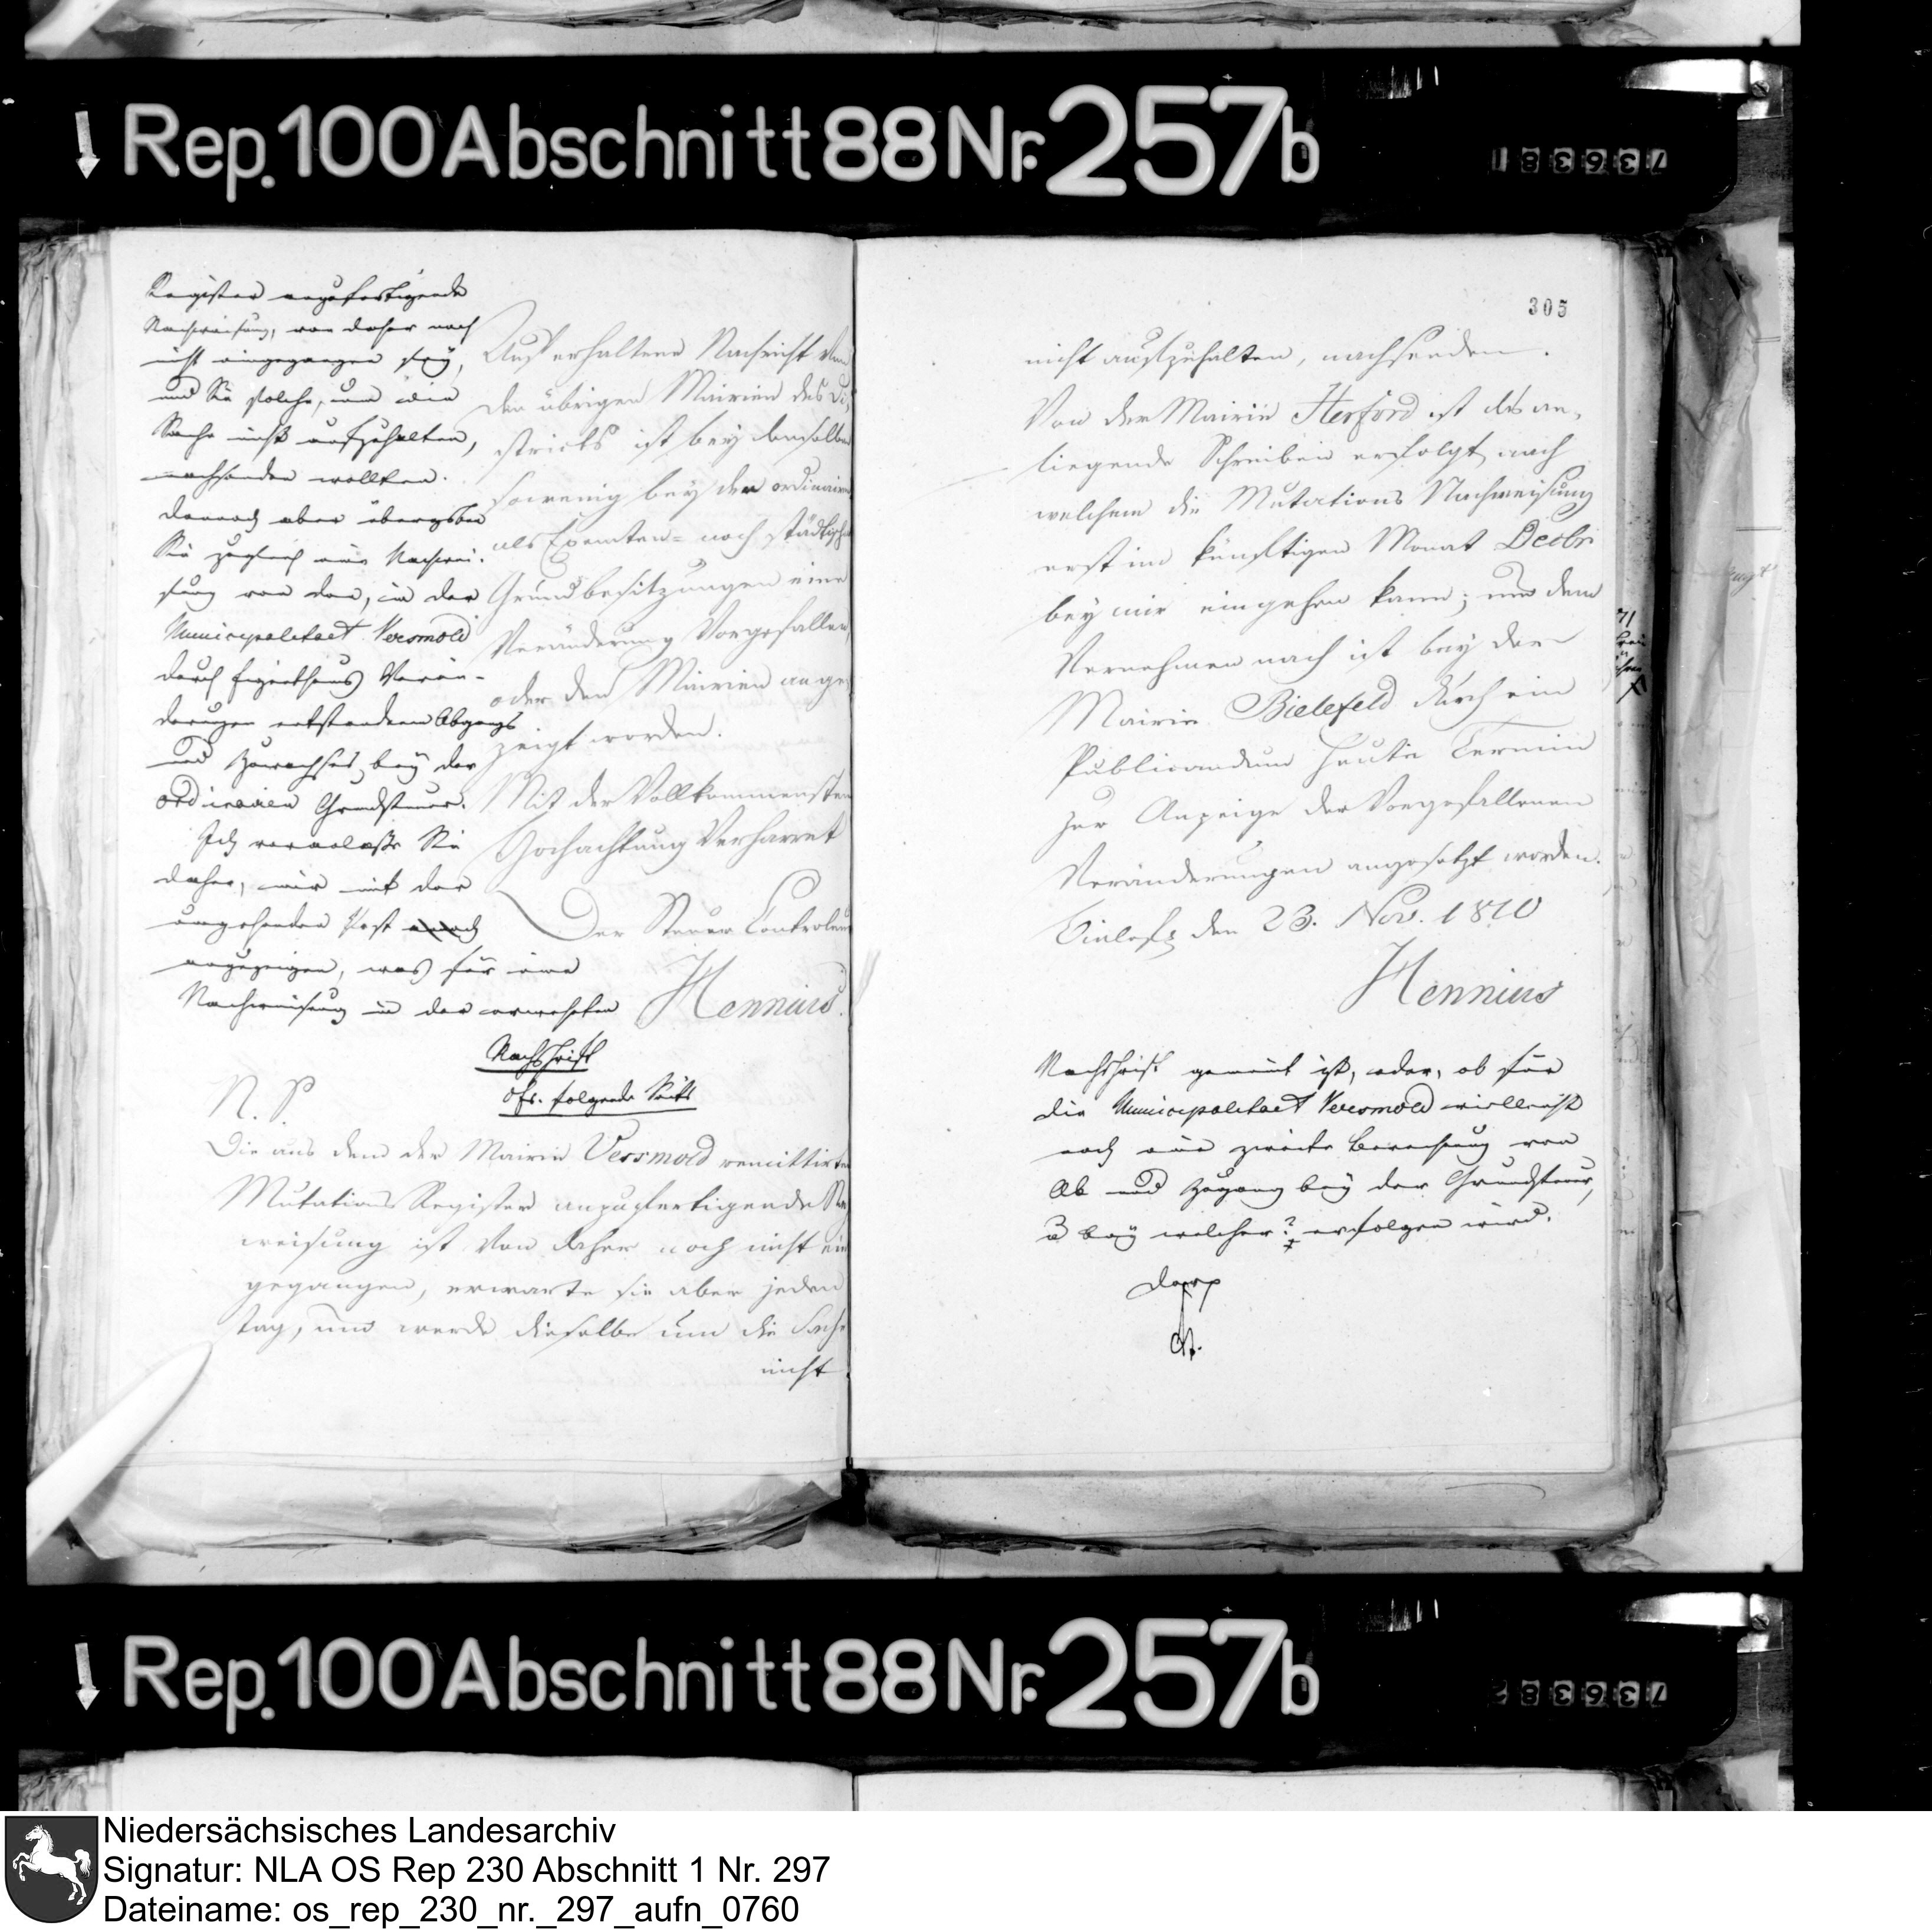 Rep. 100 Abschnitt 88 Nr. 257b
736381
Register anzufertigende
Nachweisung, von daher noch
nicht eingegangen sey,
und Sie solche, um die
Sache nicht aufzuhalten,
nachsenden wollten.
Danach aber übergeben
Sie zugleich eine Nachwei-
sung von den, in der
Municipalitaet Versmold
durch Eigenthums Verän-
derungen entstandenen Abgangs
und Zuwachses bey der
ordinairen Grundsteuer.
Ich veranlaße Sie
daher, mir mit der
umgehenden Post
anzuzeigen, was für eine
Nachweisung in der erwehnten
Nachschrift
folgende Seite
Aus erhaltener Nachricht von
den übrigen Mairien des Di-
stricts ist bey denselben
sowenig bey den ordinairen
als Exemten- noch städtischen
Grundbesitzungen eine
Veränderung Vorgefallen,
oder den Mairien ange
zeigt worden.
Mit der Vollkommensten
Hochachtung Verharret
Der Steuer Controleur
Hennius.
N. S.
Die aus dem der Mairie Versmold remittirten
Mutations Register anzufertigende Nach
weisung ist von daher noch nicht ein
gegangen, erwarte sie aber jeden
Tag, und werde dieselbe um die Sache
nicht
305
nicht aufzuhalten, nachsenden.
Von der Mairie Herford ist das an-
liegende Schreiben erfolgt, nach
welchem die Mutations Nachweisung
erst im künftigen Monat Decbr
bey mir eingehen kann; und dem
Vernehmen nach ist bey der
Mairie Bielefeld durch ein
Publicandum heute Termin
zur Anzeige der Vorgefallenen
Veränderungen angesetzt worden.
den 23. Nov. 1810
Hennius
Nachschrift gemeint ist, oder, ob für
die Municipalitaet Versmold vielleicht
noch eine zweite Berechnung von
Ab und Zugang bey der Grundsteuer,
u bey welcher? erfolgen wird.
Rep. 100 Abschnitt 88 Nr. 257b
736382
Niedersächsisches Landesarchiv
Signatur: NLA OS Rep 230 Abschnitt 1 Nr. 297
Dateiname: os_rep_230_nr._297_aufn_0760